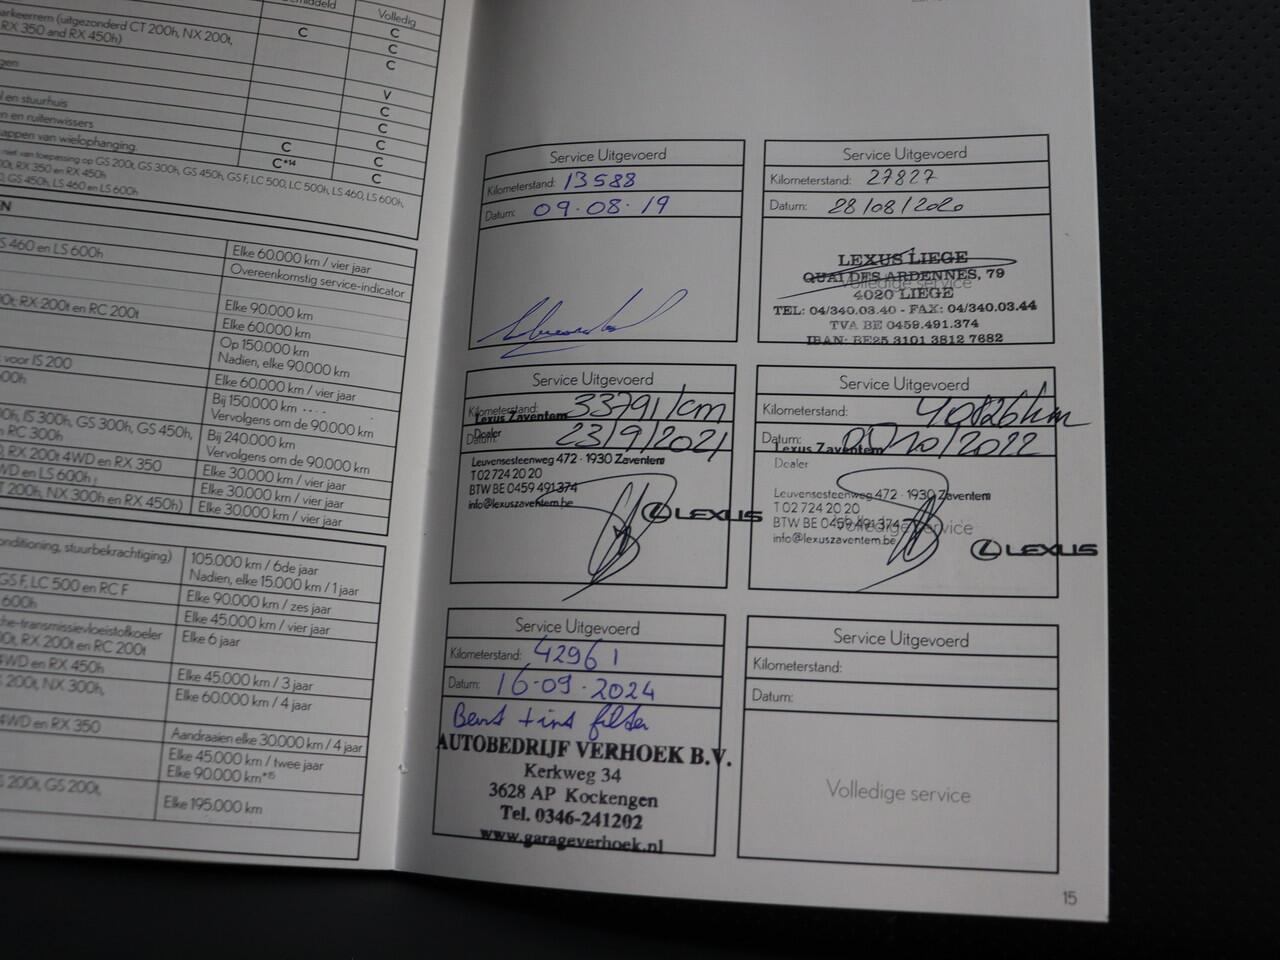 Volledig
arkeerrem (uitgezonderd CT 200h, NX 200t,
RX 350 and RX 450h)
C
C
C
C
V
l en stuurhuis
C
en ruitenwissers
C
appen van wielophanging.
C
C
C*14
C
niet van toepassing op GS 200t, GS 300h, GS 450h, GS F, LC 500, LC 500h, LS 460, LS 600h,
RX 350 en RX 450h
GS 450h, LS 460 en LS 600h
EN
S 460 en LS 600h
Elke 60.000 km / vier jaar
Overeenkomstig service-indicator
Elke 90.000 km
RX 200t en RC 200t
Elke 60.000 km
Op 150.000 km
Nadien, elke 90.000 km
voor IS 200
Elke 60.000 km / vier jaar
Bij 150.000 km
Vervolgens om de 90.000 km
IS 300h, GS 300h, GS 450h,
RC 300h
Bij 240.000 km
Vervolgens om de 90.000 km
RX 200t 4WD en RX 350
Elke 30.000 km / vier jaar
WD en LS 600h
Elke 30.000 km / vier jaar
T 200h, NX 300h en RX 450h)
Elke 30.000 km / vier jaar
onditioning, stuurbekrachtiging)
105.000 km / 6de jaar
Nadien, elke 15.000 km / 1 jaar
GS F, LC 500 en RC F
Elke 90.000 km / zes jaar
600h
Elke 45.000 km / vier jaar
che-transmissievloeistofkoeler
RX 200t en RC 200t
Elke 6 jaar
4WD en RX 450h
Elke 45.000 km / 3 jaar
200t, NX 300h,
Elke 60.000 km / 4 jaar
4WD en RX 350
Aandraaien elke 30.000 km / 4 jaar
Elke 45.000 km / twee jaar
Elke 90.000 km*15
S 200t, GS 200t,
Elke 195.000 km
Service Uitgevoerd
Kilometerstand: 13588
Datum: 09.08.19
Service Uitgevoerd
Kilometerstand: 27827
Datum: 28/08/2020
Volledige service
LEXUS LIEGE
QUAI DES ARDENNES, 79
4020 LIEGE
TEL: 04/340.03.40 - FAX: 04/340.03.44
TVA BE 0459.491.374
IBAN: BE25 3101 3812 7682
Service Uitgevoerd
Kilometerstand: 33791/km
Datum: 23/9/2021
Lexus Zaventem
Dealer
Leuvensesteenweg 472 · 1930 Zaventem
T 02 724 20 20
BTW BE 0459 491374
info@lexuszaventem.be
LEXUS
Service Uitgevoerd
Kilometerstand: 40826km
Datum: /10/2022
Lexus Zaventem
Dealer
Leuvensesteenweg 472 · 1930 Zaventem
T 02 724 20 20
BTW BE 0459 491374
info@lexuszaventem.be
Volledige service
LEXUS
Service Uitgevoerd
Kilometerstand: 42961
Datum: 16-09-2024
Beurt + int filter
AUTOBEDRIJF VERHOEK B.V.
Kerkweg 34
3628 AP Kockengen
Tel. 0346-241202
www.garageverhoek.nl
Service Uitgevoerd
Kilometerstand:
Datum:
Volledige service
15